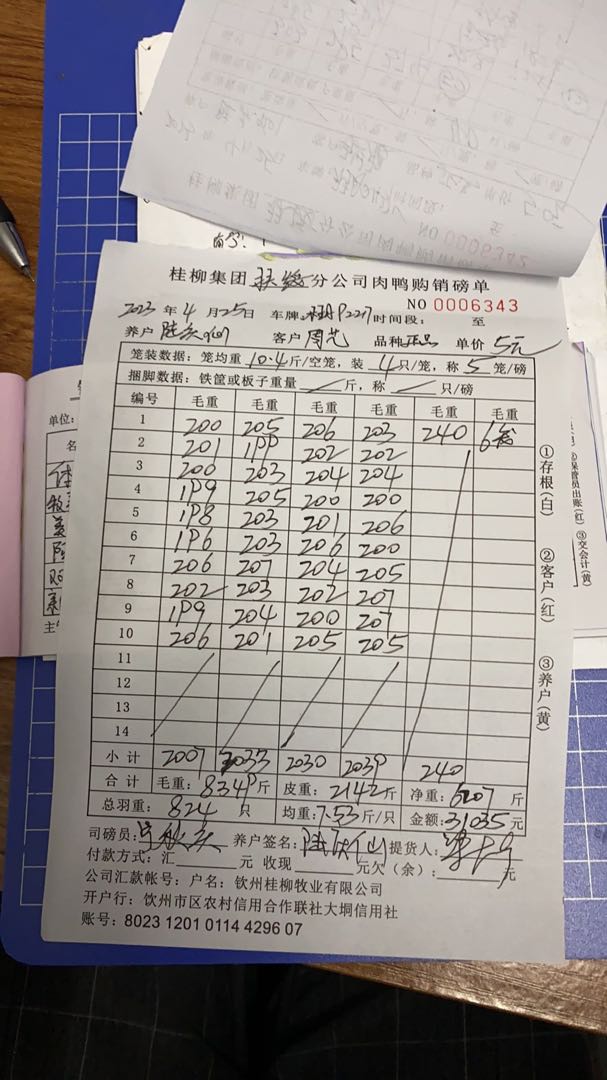 NO 0006342
桂柳集团 扶绥 分公司肉鸭购销磅单
NO 0006343
2023 年 4 月 25 日 车牌: P2217 时间段: 至
养户 客户 周艺 品种 正品 单价 5元
笼装数据: 笼均重 10.4 斤/空笼, 装 4 只/笼, 称 5 笼/磅
捆脚数据: 铁筐或板子重量 斤, 称 只/磅
编号 毛重 毛重 毛重 毛重 毛重 毛重
1 200 205 206 203 240 6笼
2 201 199 202 202
3 200 203 204 204
4 199 205 200 200
5 198 203 201 206
6 196 203 206 200
7 206 207 204 205
8 202 203 202 207
9 199 204 200 207
10 206 201 205 205
11
12
13
14
小计 2007 2033 2030 2039 240
合计 毛重: 8349 斤 皮重: 2142 斤 净重: 6207 斤
总羽重: 824 只 均重: 7.53 斤/只 金额: 31035 元
司磅员: 养户签名: 提货人:
付款方式: 汇 元 收现 元欠(余): 元
公司汇款帐号: 户名: 钦州桂柳牧业有限公司
开户行: 饮州市区农村信用合作联社大垌信用社
账号: 8023 1201 0114 4296 07
①存根(白)
②客户(红)
③养户(黄)
单位:
②保管员出账(红)
③交会计(黄)